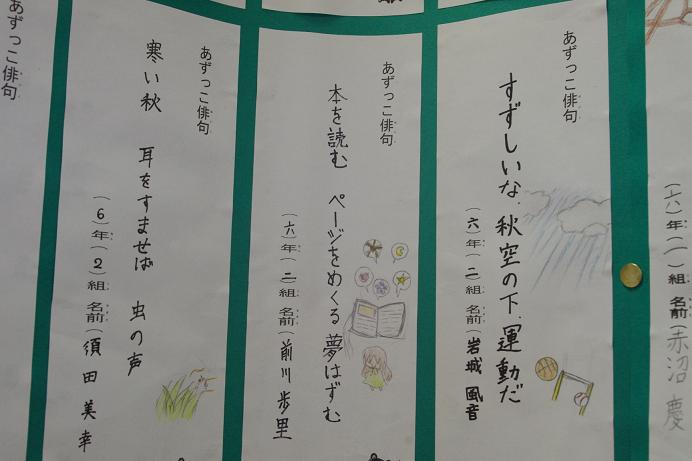 (六)年(一)組 名前(赤沼 慶
あずっこ俳句
すずしいな、秋空の下、運動だ
(六)年(二)組 名前(岩城 風音
あずっこ俳句
本を読む ページをめくる 夢はずむ
(六)年(二)組 名前(前川歩里
あずっこ俳句
寒い秋 耳をすませば 虫の声
(6)年(2)組 名前(須田美幸
あずっこ俳句